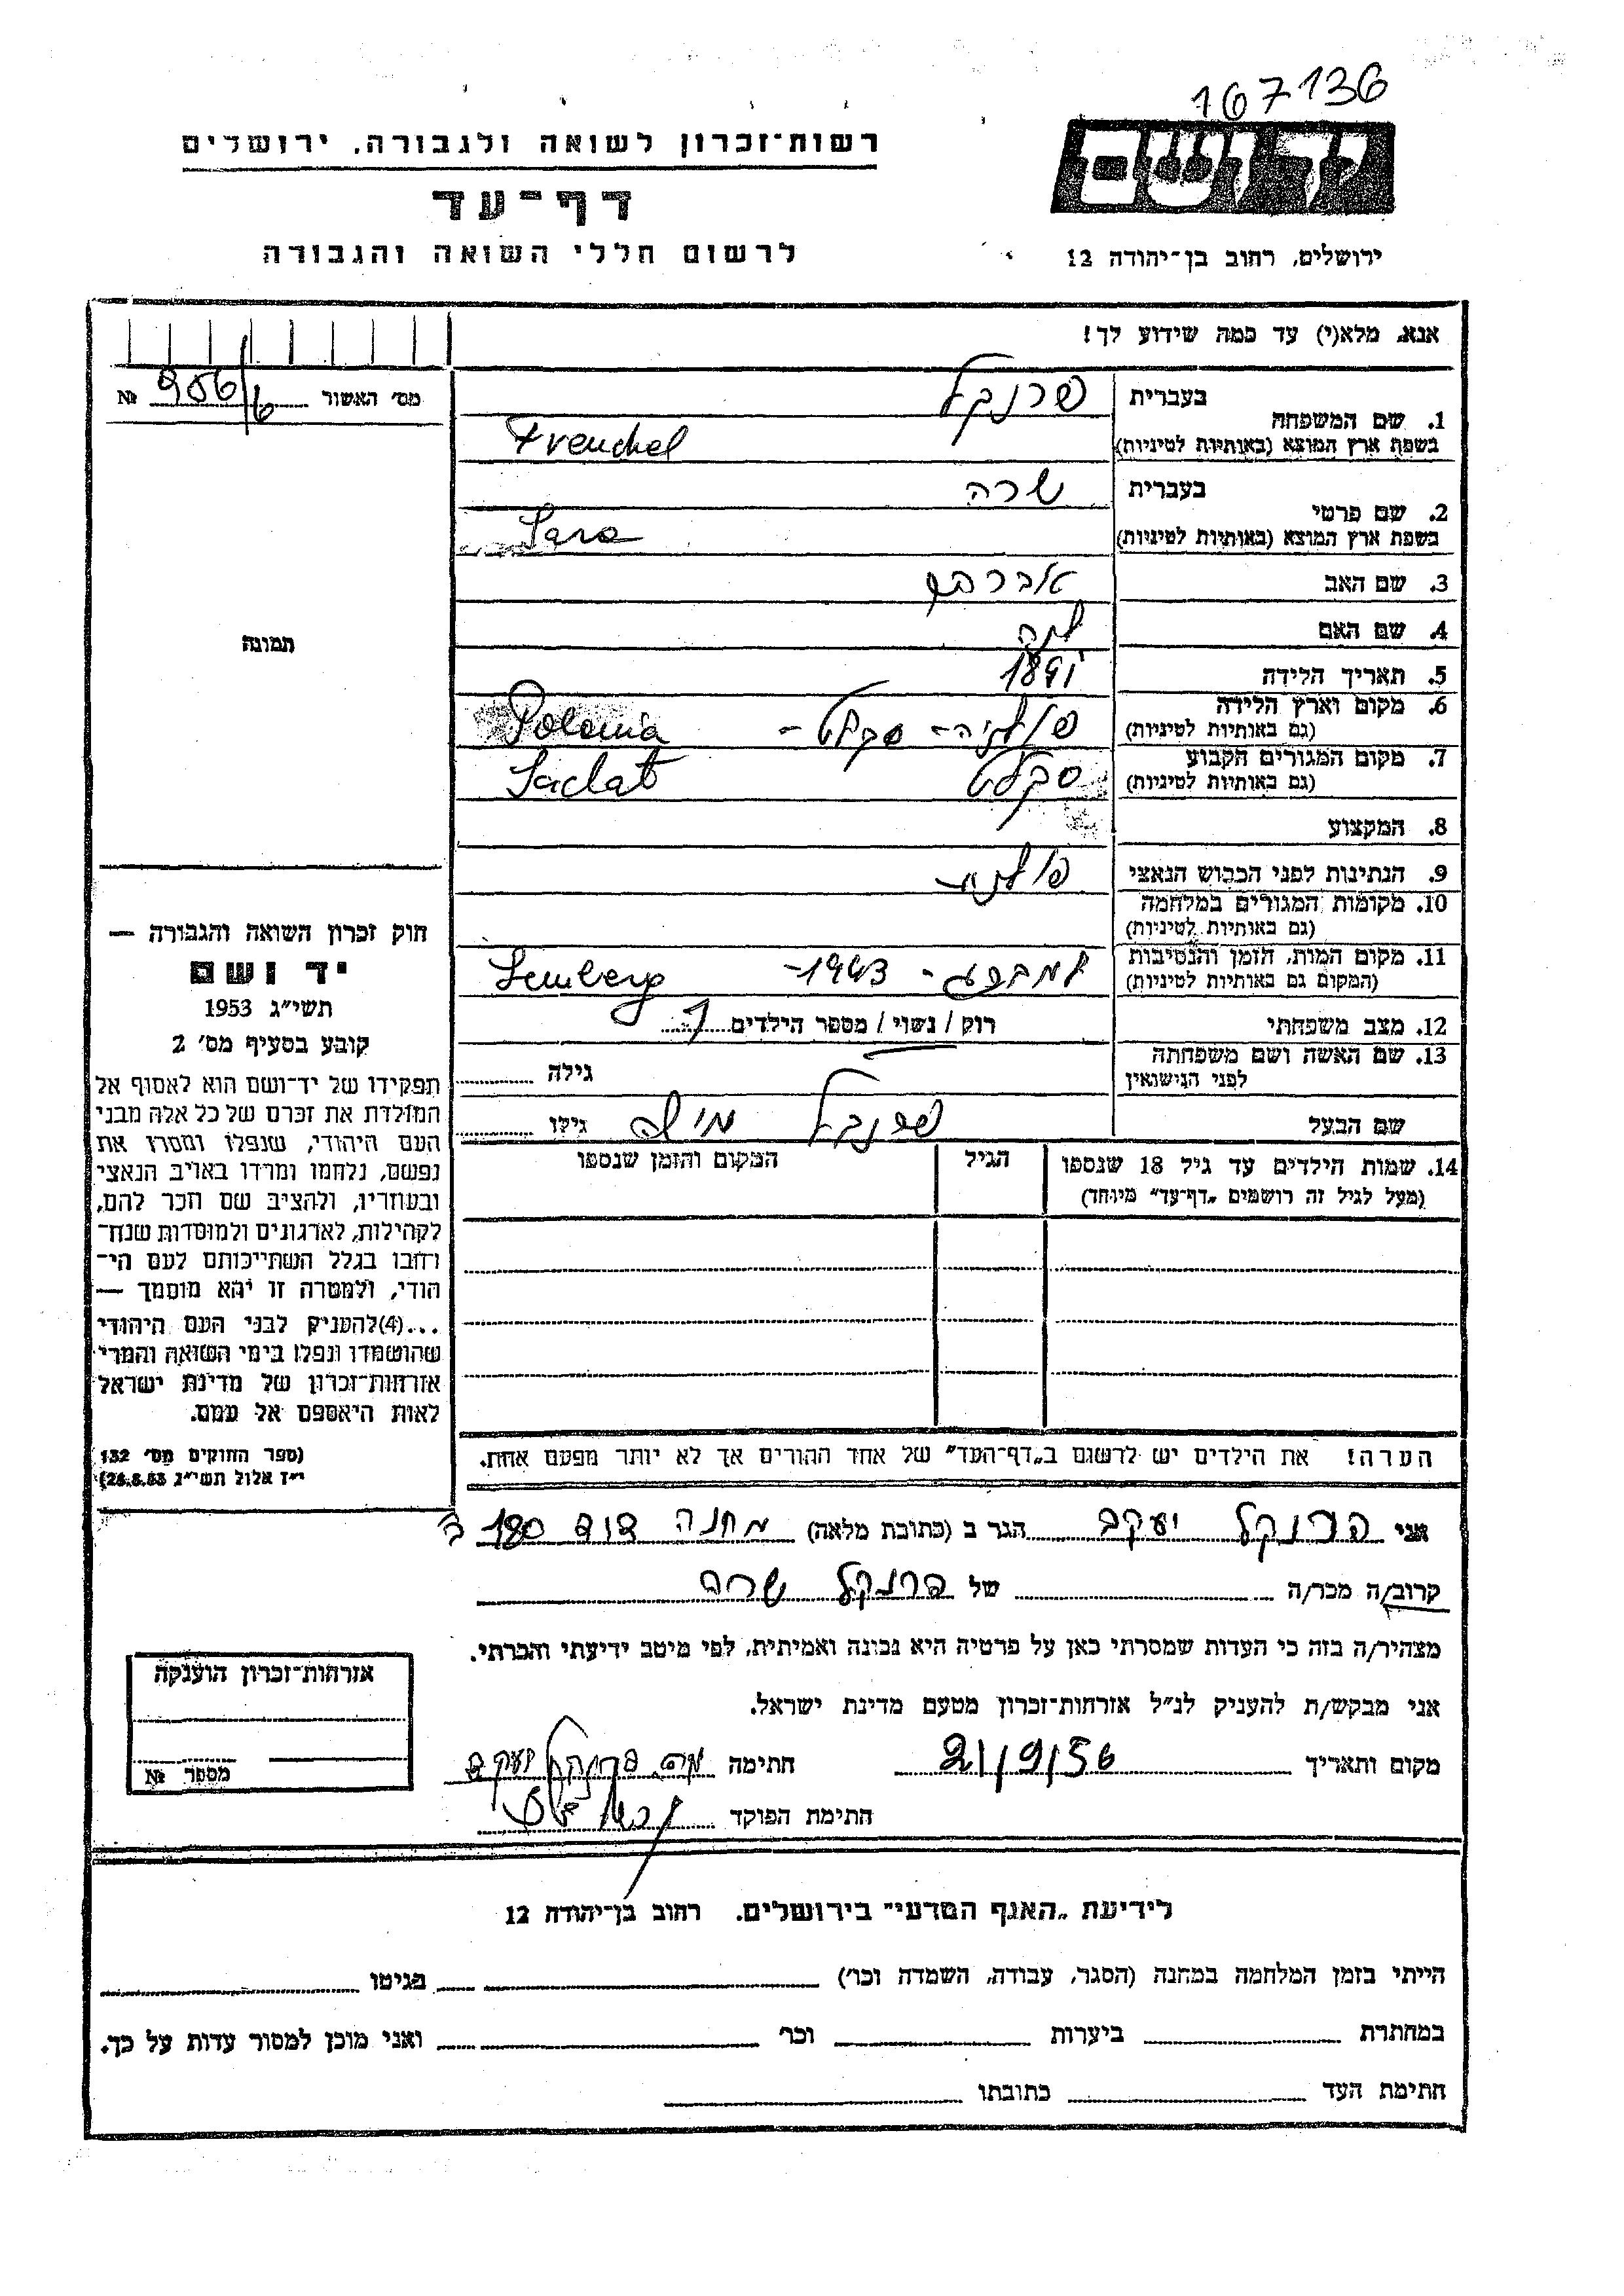 167136
רשות־זכרון לשואה ולגבורה, ירושלים
דף־עד
לרשום חללי השואה והגבורה
ידושם
ירושלים, רחוב בן־יהודה 12
אנא, מלא(י) עד כמה שידוע לך!
מס׳ האשור 956/6 №
1. שם המשפחה בעברית פרנקל
בשפת ארץ המוצא (באותיות לטיניות) Frenchel
2. שם פרטי בעברית שרה
בשפת ארץ המוצא (באותיות לטיניות) Sara
3. שם האב אברהם
4. שם האם
5. תאריך הלידה 1891
6. מקום וארץ הלידה (גם באותיות לטיניות) פולניה - סקלט - Polonia
7. מקום המגורים הקבוע (גם באותיות לטיניות) סקלט Saclat
8. המקצוע
9. הנתינות לפני הכבוש הנאצי
10. מקומות המגורים במלחמה (גם באותיות לטיניות)
11. מקום המות, הזמן והנסיבות (המקום גם באותיות לטיניות) למברג - 1943 - Lemberg
12. מצב משפחתי רוק / נשוי / מספר הילדים
13. שם האשה ושם משפחתה לפני הנישואין גילה
שם הבעל פרנקל גילו
14. שמות הילדים עד גיל 18 שנספו (מעל לגיל זה רושמים „דף־עד״ מיוחד) הגיל המקום והזמן שנספו
הערה! את הילדים יש לרשום ב„דף־העד״ של אחד ההורים אך לא יותר מפעם אחת.
תמונה
חוק זכרון השואה והגבורה —
יד ושם
תשי״ג 1953
קובע בסעיף מס׳ 2
תפקידו של יד־ושם הוא לאסוף אל
המולדת את זכרם של כל אלה מבני
העם היהודי, שנפלו ומסרו את
נפשם, נלחמו ומרדו באויב הנאצי
ובעוזריו, ולהציב שם וזכר להם,
לקהילות, לארגונים ולמוסדות שנח־
רבו בגלל השתייכותם לעם הי־
הודי, ולמטרה זו יהא מוסמך —
...(4)להעניק לבני העם היהודי
שהושמדו ונפלו בימי השואה והמרי
אזרחות־זכרון של מדינת ישראל
לאות היאספם אל עמם.
(ספר החוקים מס׳ 132
י״ז אלול תשי״ג 28.8.53)
אני פרנקל יעקב הגר ב (כתובת מלאה) מחנה דוד 180 ד
קרוב/ה מכר/ה של פרנקל שרה
מצהיר/ה בזה כי העדות שמסרתי כאן על פרטיה היא נכונה ואמיתית, לפי מיטב ידיעתי והכרתי.
אני מבקש/ת להעניק לנ״ל אזרחות־זכרון מטעם מדינת ישראל.
מקום ותאריך 2/9/56 חתימה פרנקל יעקב
חתימת הפוקד
אזרחות־זכרון הוענקה
מספר №
לידיעת „האגף המדעי״ בירושלים. רחוב בן־יהודה 12
הייתי בזמן המלחמה במחנה (הסגר, עבודה, השמדה וכו׳) בגיטו
במחתרת ביערות וכו׳ ואני מוכן למסור עדות על כך.
חתימת העד כתובתו